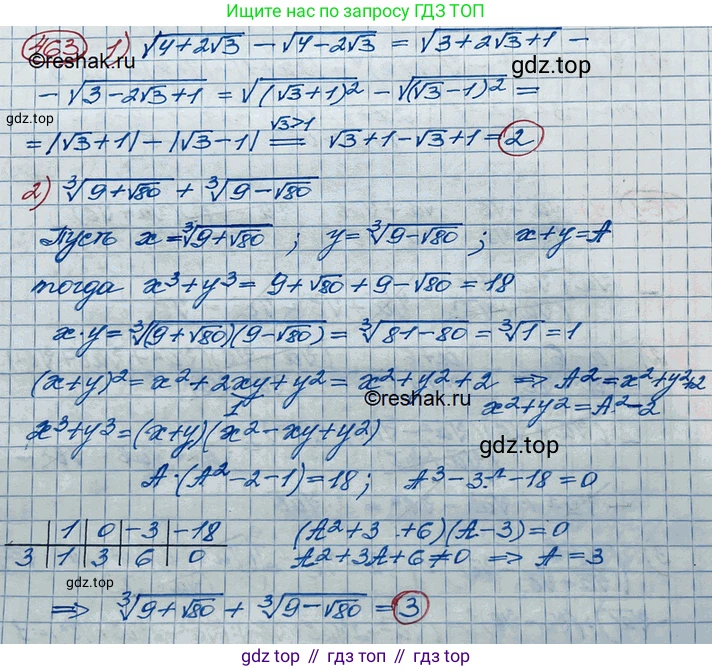 Решебники и ответы по запросу ГДЗ ТОП
463 1) √(4+2√3) − √(4−2√3) = √(3+2√3+1) −
©reshak.ru
gdz.top
− √(3−2√3+1) = √((√3+1)²) − √((√3−1)²) =
gdz.top
= |√3+1| − |√3−1| =(√3>1)= √3+1−√3+1 = 2
2) ∛(9+√80) + ∛(9−√80)
Пусть x = ∛(9+√80) ; y = ∛(9−√80) ; x+y=A
тогда x³+y³ = 9+√80+9−√80 = 18
x·y = ∛((9+√80)(9−√80)) = ∛(81−80) = ∛1 = 1
(x+y)² = x²+2xy+y² = x²+y²+2 ⇒ A² = x²+y²+2
1
©reshak.ru
x²+y² = A²−2
x³+y³ = (x+y)(x²−xy+y²)
gdz.top
A·(A²−2−1)=18; A³−3A−18=0
| 1 | 0 | −3 | −18
3 | 1 | 3 | 6 | 0
(A²+3 +6)(A−3)=0
A²+3A+6≠0 ⇒ A=3
gdz.top
⇒ ∛(9+√80) + ∛(9−√80) = 3
gdz.top // гдз.топ // gdz.top // гдз.топ